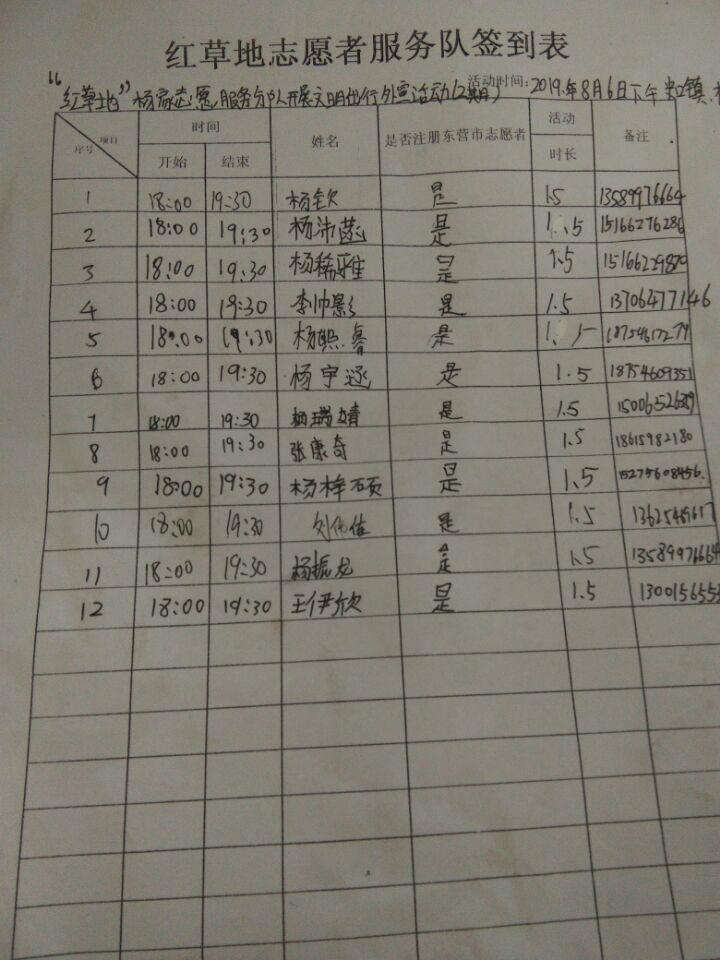 红草地志愿者服务队签到表
活动时间:2019.年8月6日下午
"红草地"杨家志愿服务分队开展文明出行外宣活动(2期)
序号 项目 时间 姓名 是否注册东营市志愿者 活动 备注
开始 结束 时长
1 18:00 19:30 杨钦 是 1.5 13589976664
2 18:00 19:30 杨沛蕊 是 1.5 15166276286
3 18:00 19:30 杨稀雅 是 1.5 15166229870
4 18:00 19:30 李帅影 是 1.5 13706477146
5 18:00 19:30 杨熙睿 是 1.5
6 18:00 19:30 杨宇涵 是 1.5 18754609351
7 18:00 19:30 杨瑞婧 是 1.5
8 18:00 19:30 张康奇 是 1.5 18615982180
9 18:00 19:30 杨梓硕 是 1.5 15275608456.
10 18:00 19:30 刘伟佳 是 1.5
11 18:00 19:30 杨振龙 是 1.5 13589976664
12 18:00 19:30 王伊欣 是 1.5